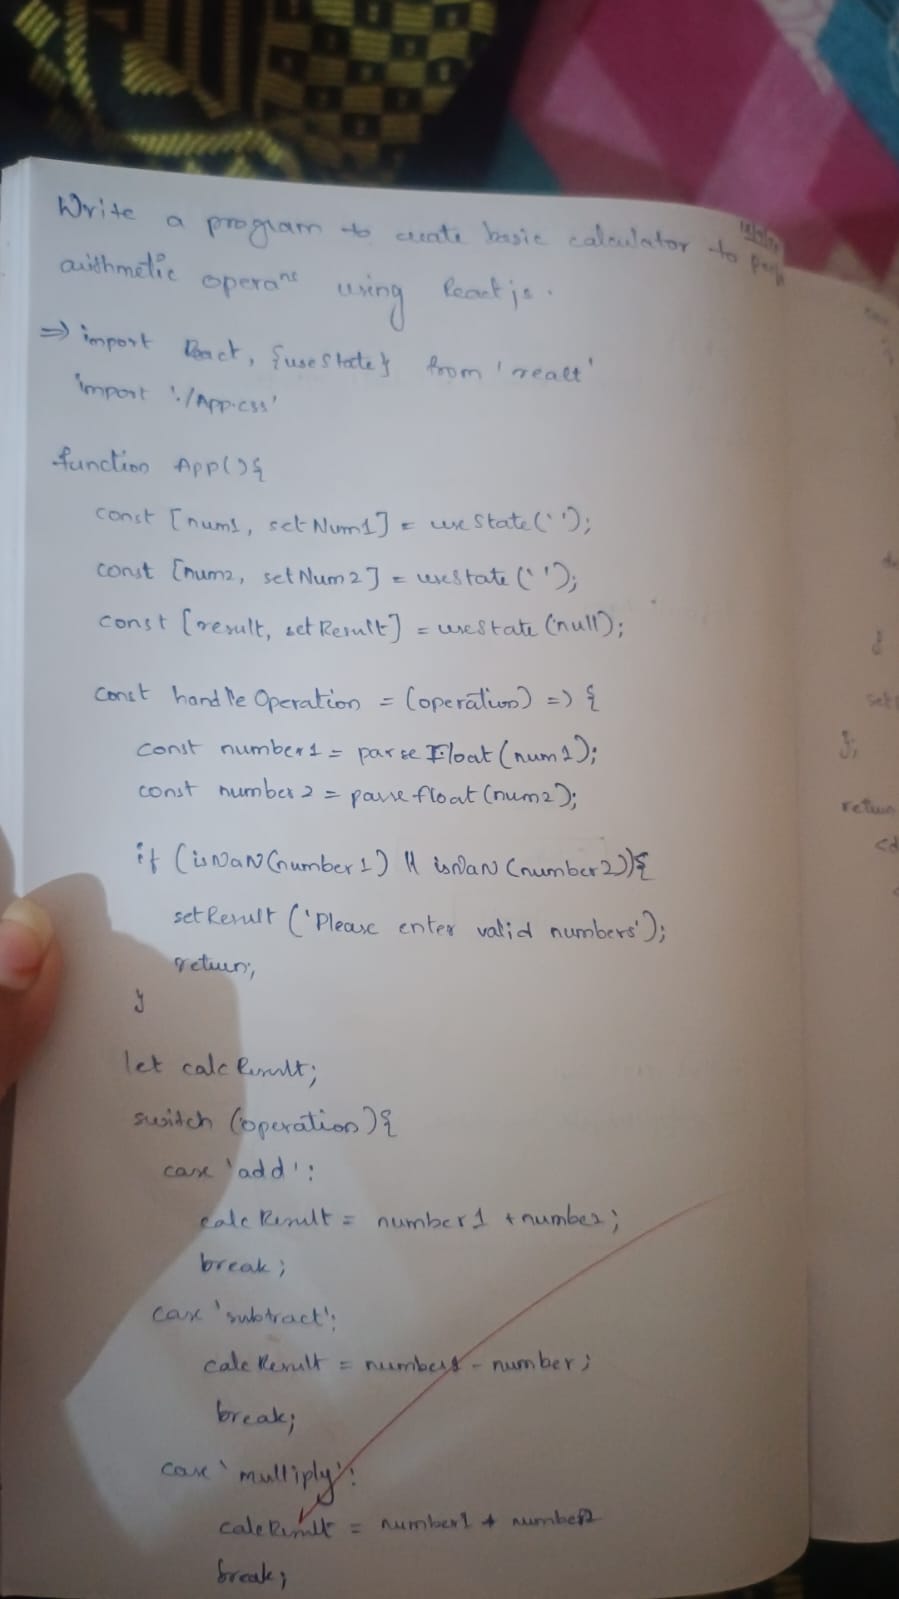 Write a program to create basic calculator to
arithmetic operaⁿˢ using Reactjs.
=> import React, {useState} from 'react'
import './App.css'
function App(){
const [num1, setNum1] = useState('');
const [num2, setNum2] = useState('');
const [result, setResult] = useState(null);
const handleOperation = (operation) => {
const number1 = parseFloat(num1);
const number2 = parsefloat(num2);
if (isNaN(number1) || isNaN(number2)){
setResult ('Please enter valid numbers');
return;
}
let calcResult;
switch (operation){
case 'add':
calcResult = number1 + number;
break;
case 'subtract':
calcResult = number1 - number;
break;
case 'multiply':
calcResult = number1 * number2
break;
}
};
return